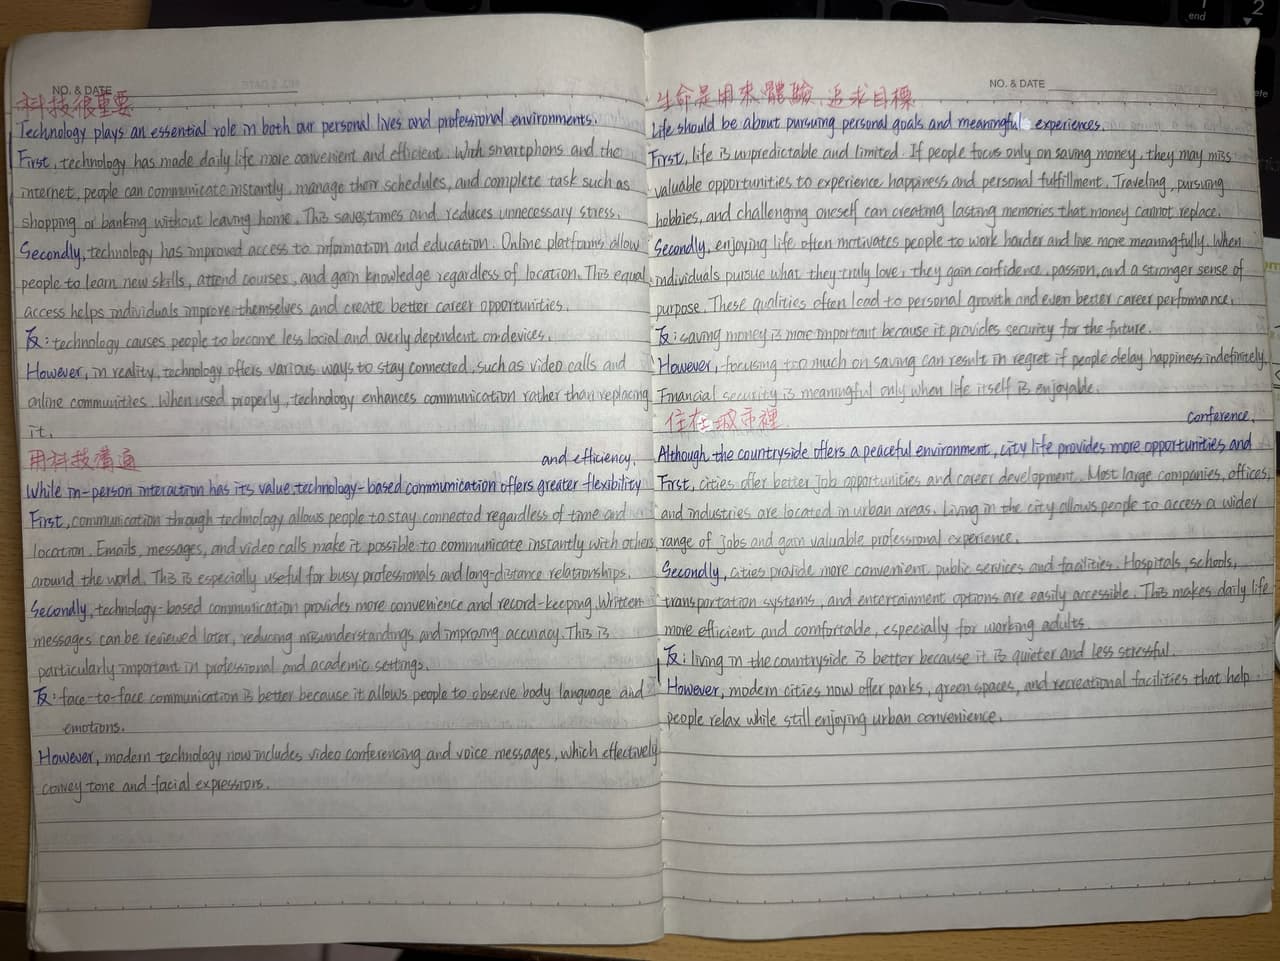 NO. & DATE
科技很重要
Technology plays an essential role in both our personal lives and professional environments.
First, technology has made daily life more convenient and efficient. With smartphons and the
internet, people can communicate instantly, manage their schedules, and complete task such as
shopping or banking without leaving home. This saves times and reduces unnecessary stress.
Secondly, technology has improved access to information and education. Online platforms allow
people to learn new skills, attend courses, and gain knowledge regardless of location. This equal
access helps individuals improve themselves and create better career opportunities.
反: technology causes people to become less local and overly dependent on devices.
However, in reality, technology offers various ways to stay connected, such as video calls and
online communities. When used properly, technology enhances communication rather than replacing
it.
用科技溝通
and efficiency.
While in-person interaction has its value, technology-based communication offers greater flexibility
First, communication through technology allows people to stay connected regardless of time and
location. Emails, messages, and video calls make it possible to communicate instantly with others
around the world. This is especially useful for busy professionals and long-distance relationships.
Secondly, technology-based communication provides more convenience and record-keeping. Written
messages can be reviewed later, reducing misunderstandings and improving accuracy. This is
particularly important in professional and academic settings.
反: face-to-face communication is better because it allows people to observe body language and
emotions.
However, modern technology now includes video conferencing and voice messages, which effectively
convey tone and facial expressions.
NO. & DATE
生命是用來體驗、追求目標
Life should be about pursuing personal goals and meaningful experiences.
First, life is unpredictable and limited. If people focus only on saving money, they may miss
valuable opportunities to experience happiness and personal fulfillment. Traveling, pursuing
hobbies, and challenging oneself can creating lasting memories that money cannot replace.
Secondly, enjoying life often motivates people to work harder and live more meaningfully. When
individuals pursue what they truly love, they gain confidence, passion, and a stronger sense of
purpose. These qualities often lead to personal growth and even better career performance.
反: saving money is more important because it provides security for the future.
However, focusing too much on saving can result in regret if people delay happiness indefinitely.
Financial security is meaningful only when life itself is enjoyable.
住在城市裡
conference.
Although the countryside offers a peaceful environment, city life provides more opportunities and
First, cities offer better job opportunities and career development. Most large companies, offices,
and industries are located in urban areas. Living in the city allows people to access a wider
range of jobs and gain valuable professional experience.
Secondly, cities provide more convenient public services and facilities. Hospitals, schools,
transportation systems, and entertainment options are easily accessible. This makes daily life
more efficient and comfortable, especially for working adults.
反: living in the countryside is better because it is quieter and less stressful.
However, modern cities now offer parks, green spaces, and recreational facilities that help
people relax while still enjoying urban convenience.
end
2